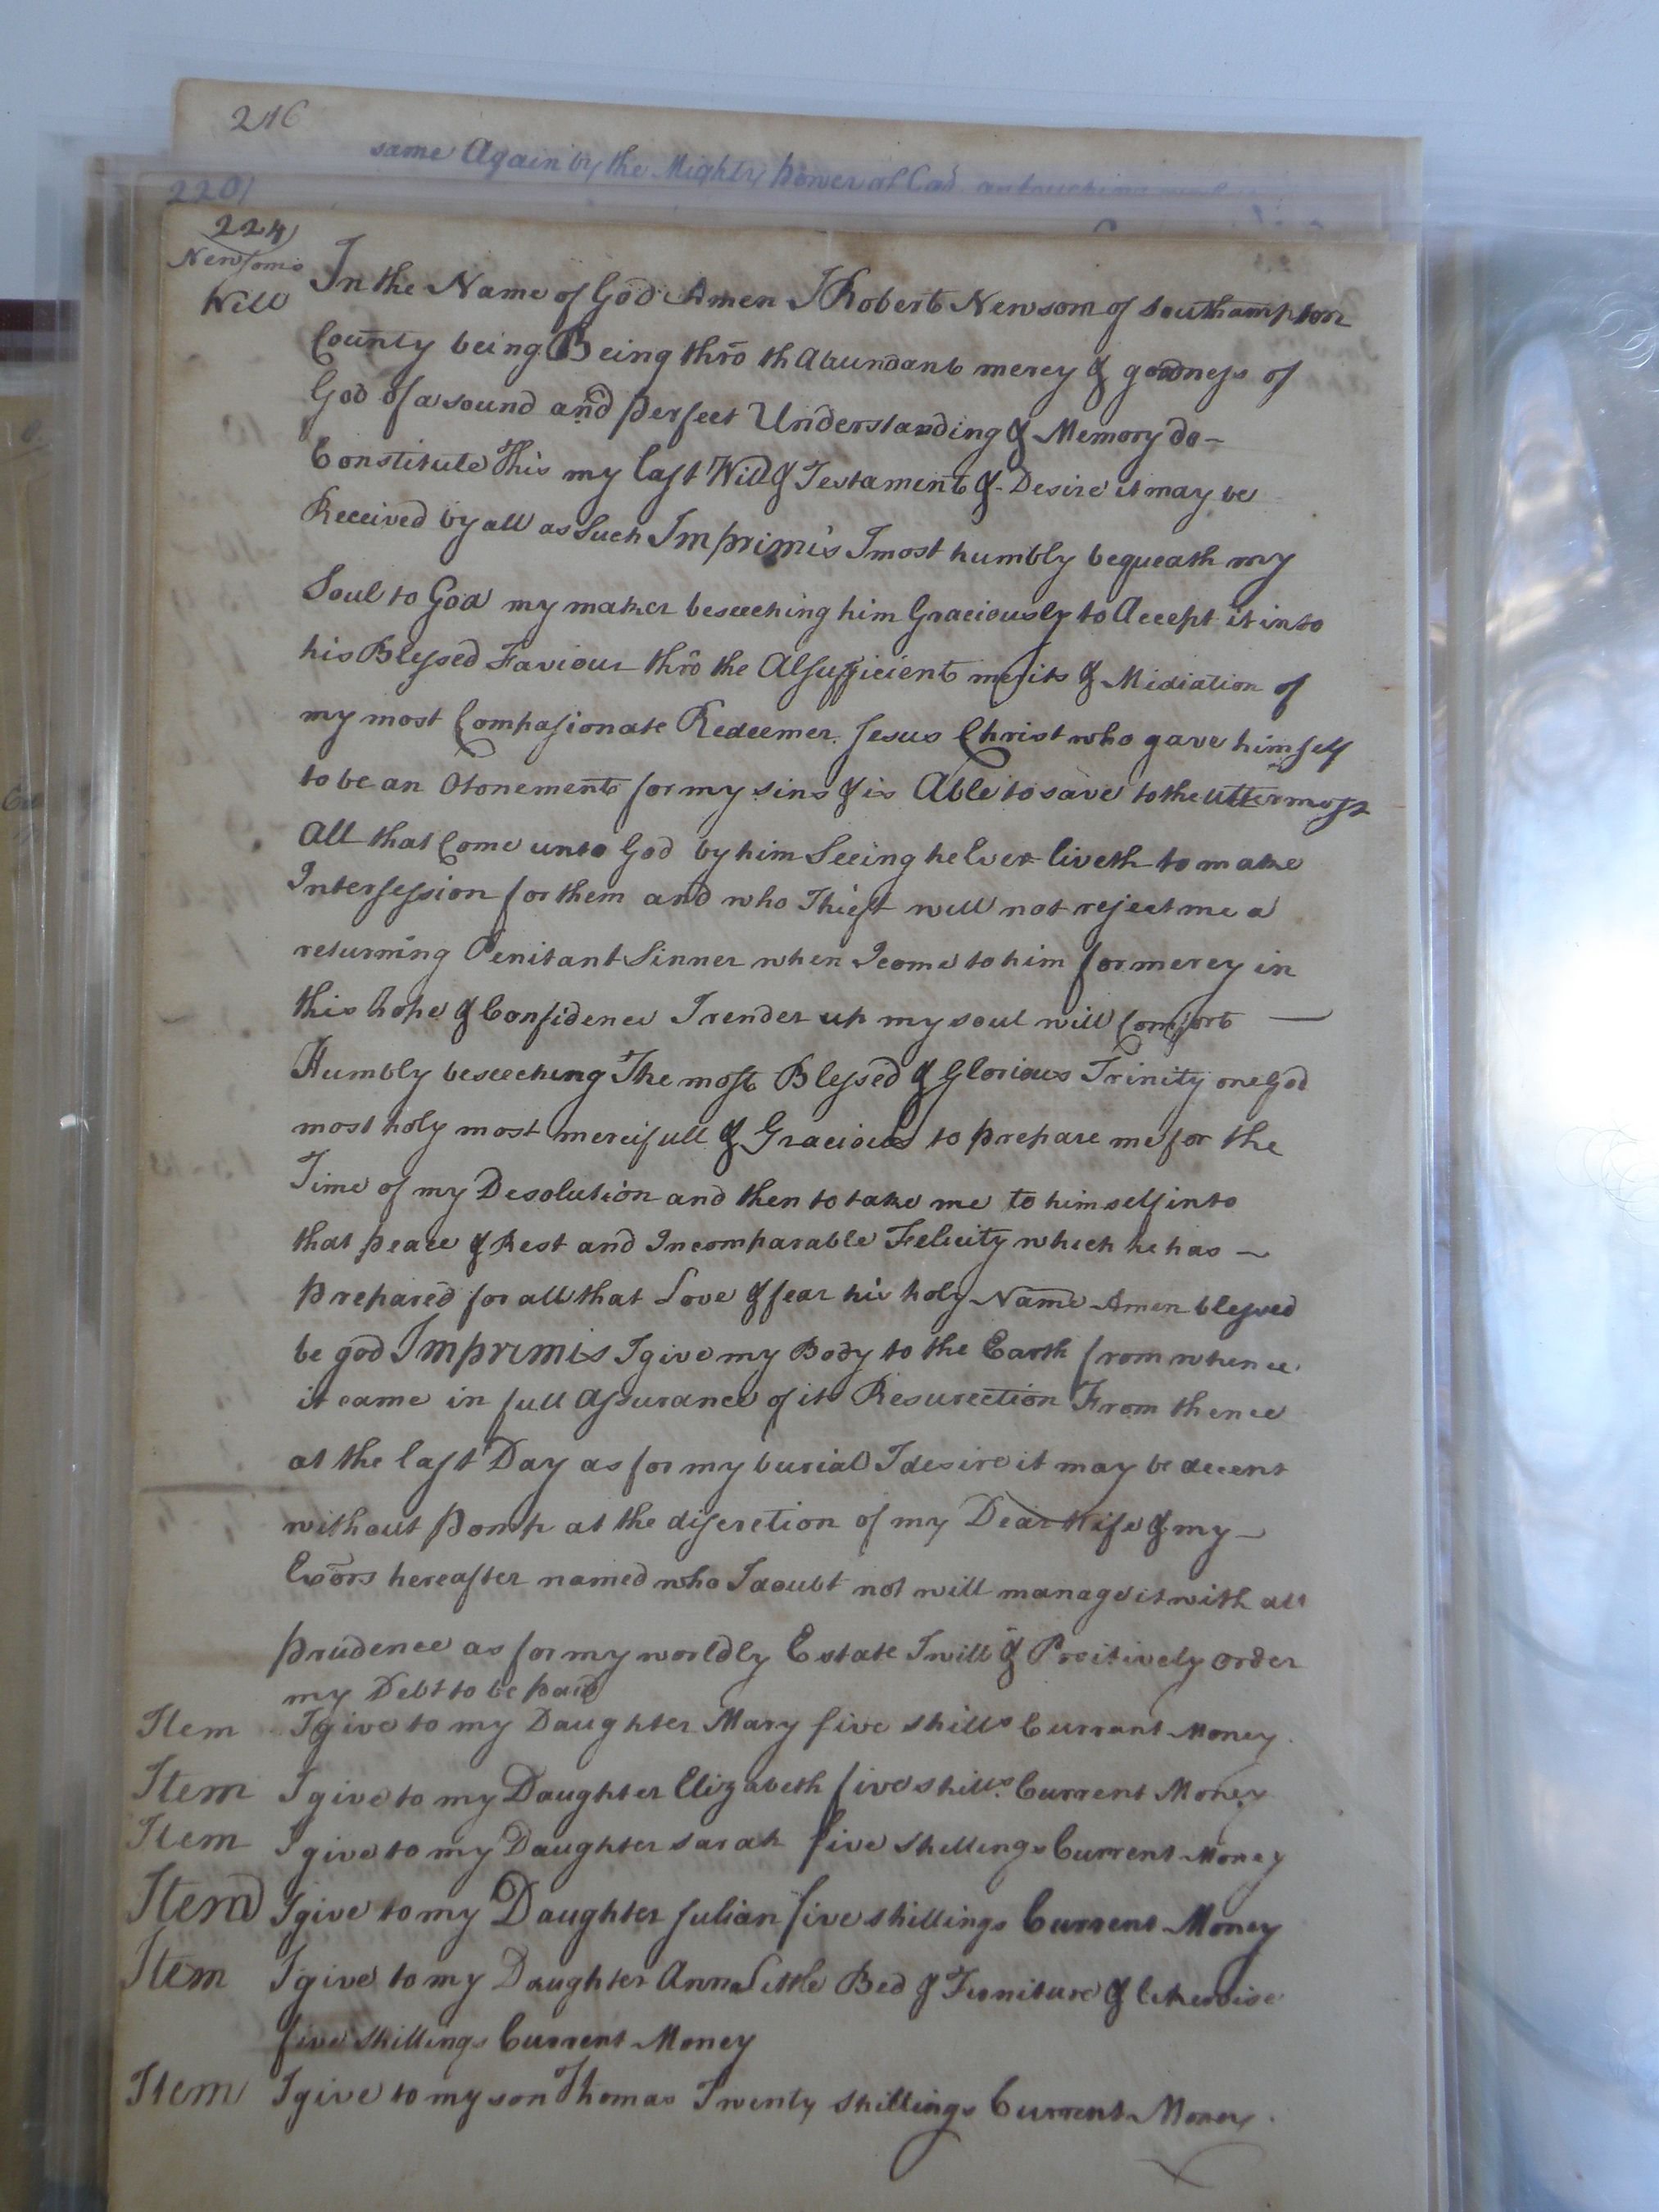 216
same Again by the Mighty power of God
220
224
Newsoms
Will
In the Name of God Amen I Robert Newsom of Southampton
County being Being thrō th Abundant mercy & goodness of
God of a sound and perfect Understanding & Memory do –
Constitute This my last Will & Testament & Desire it may be
Received by all as Such Imprimis I most humbly bequeath my
Soul to God my maker beseeching him Graciously to Accept it into
his Blessed Faviour thrō the Alsufficient merits & Midiation of
my most Compasionate Redeemer Jesus Christ who gave himself
to be an Otonement for my sins & is Able to save to the uttermost
All that Come unto God by him Seeing he Ever liveth to make
Intersession for them and who I hiest will not reject me a
returning Penitant Sinner when I come to him for mercy in
this hope & Confidence I render up my soul will Comfort —
Humbly beseeching The most Blessed & Glorious Trinity one God
most holy most mercifull & Gracious to prepare me for the
Time of my Desolution and then to take me to himself into
that peace & Rest and Incomparable Felicity which he has –
prepared for all that Love & fear his holy Name Amen blessed
be god Imprimis I give my Body to the Earth from whence
it came in full Assurance of its Resurection From thence
at the last Day as for my burial I desire it may be decent
without pomp at the discretion of my Dear Wife & my –
Exōrs hereafter named who I doubt not will manage it with all
prudence as for my worldly Estate I will & Positively order
my Debt to be paid
Item I give to my Daughter Mary five shills Currant Money.
Item I give to my Daughter Elizabeth five shills. Current Money
Item I give to my Daughter Sarah five Shillings Current Money
Item I give to my Daughter Julian five shillings Current Money
Item I give to my Daughter Anna Little Bed & Furniture & likewise
five shillings Current Money
Item I give to my son Thomas Twenty shillings Current Money.